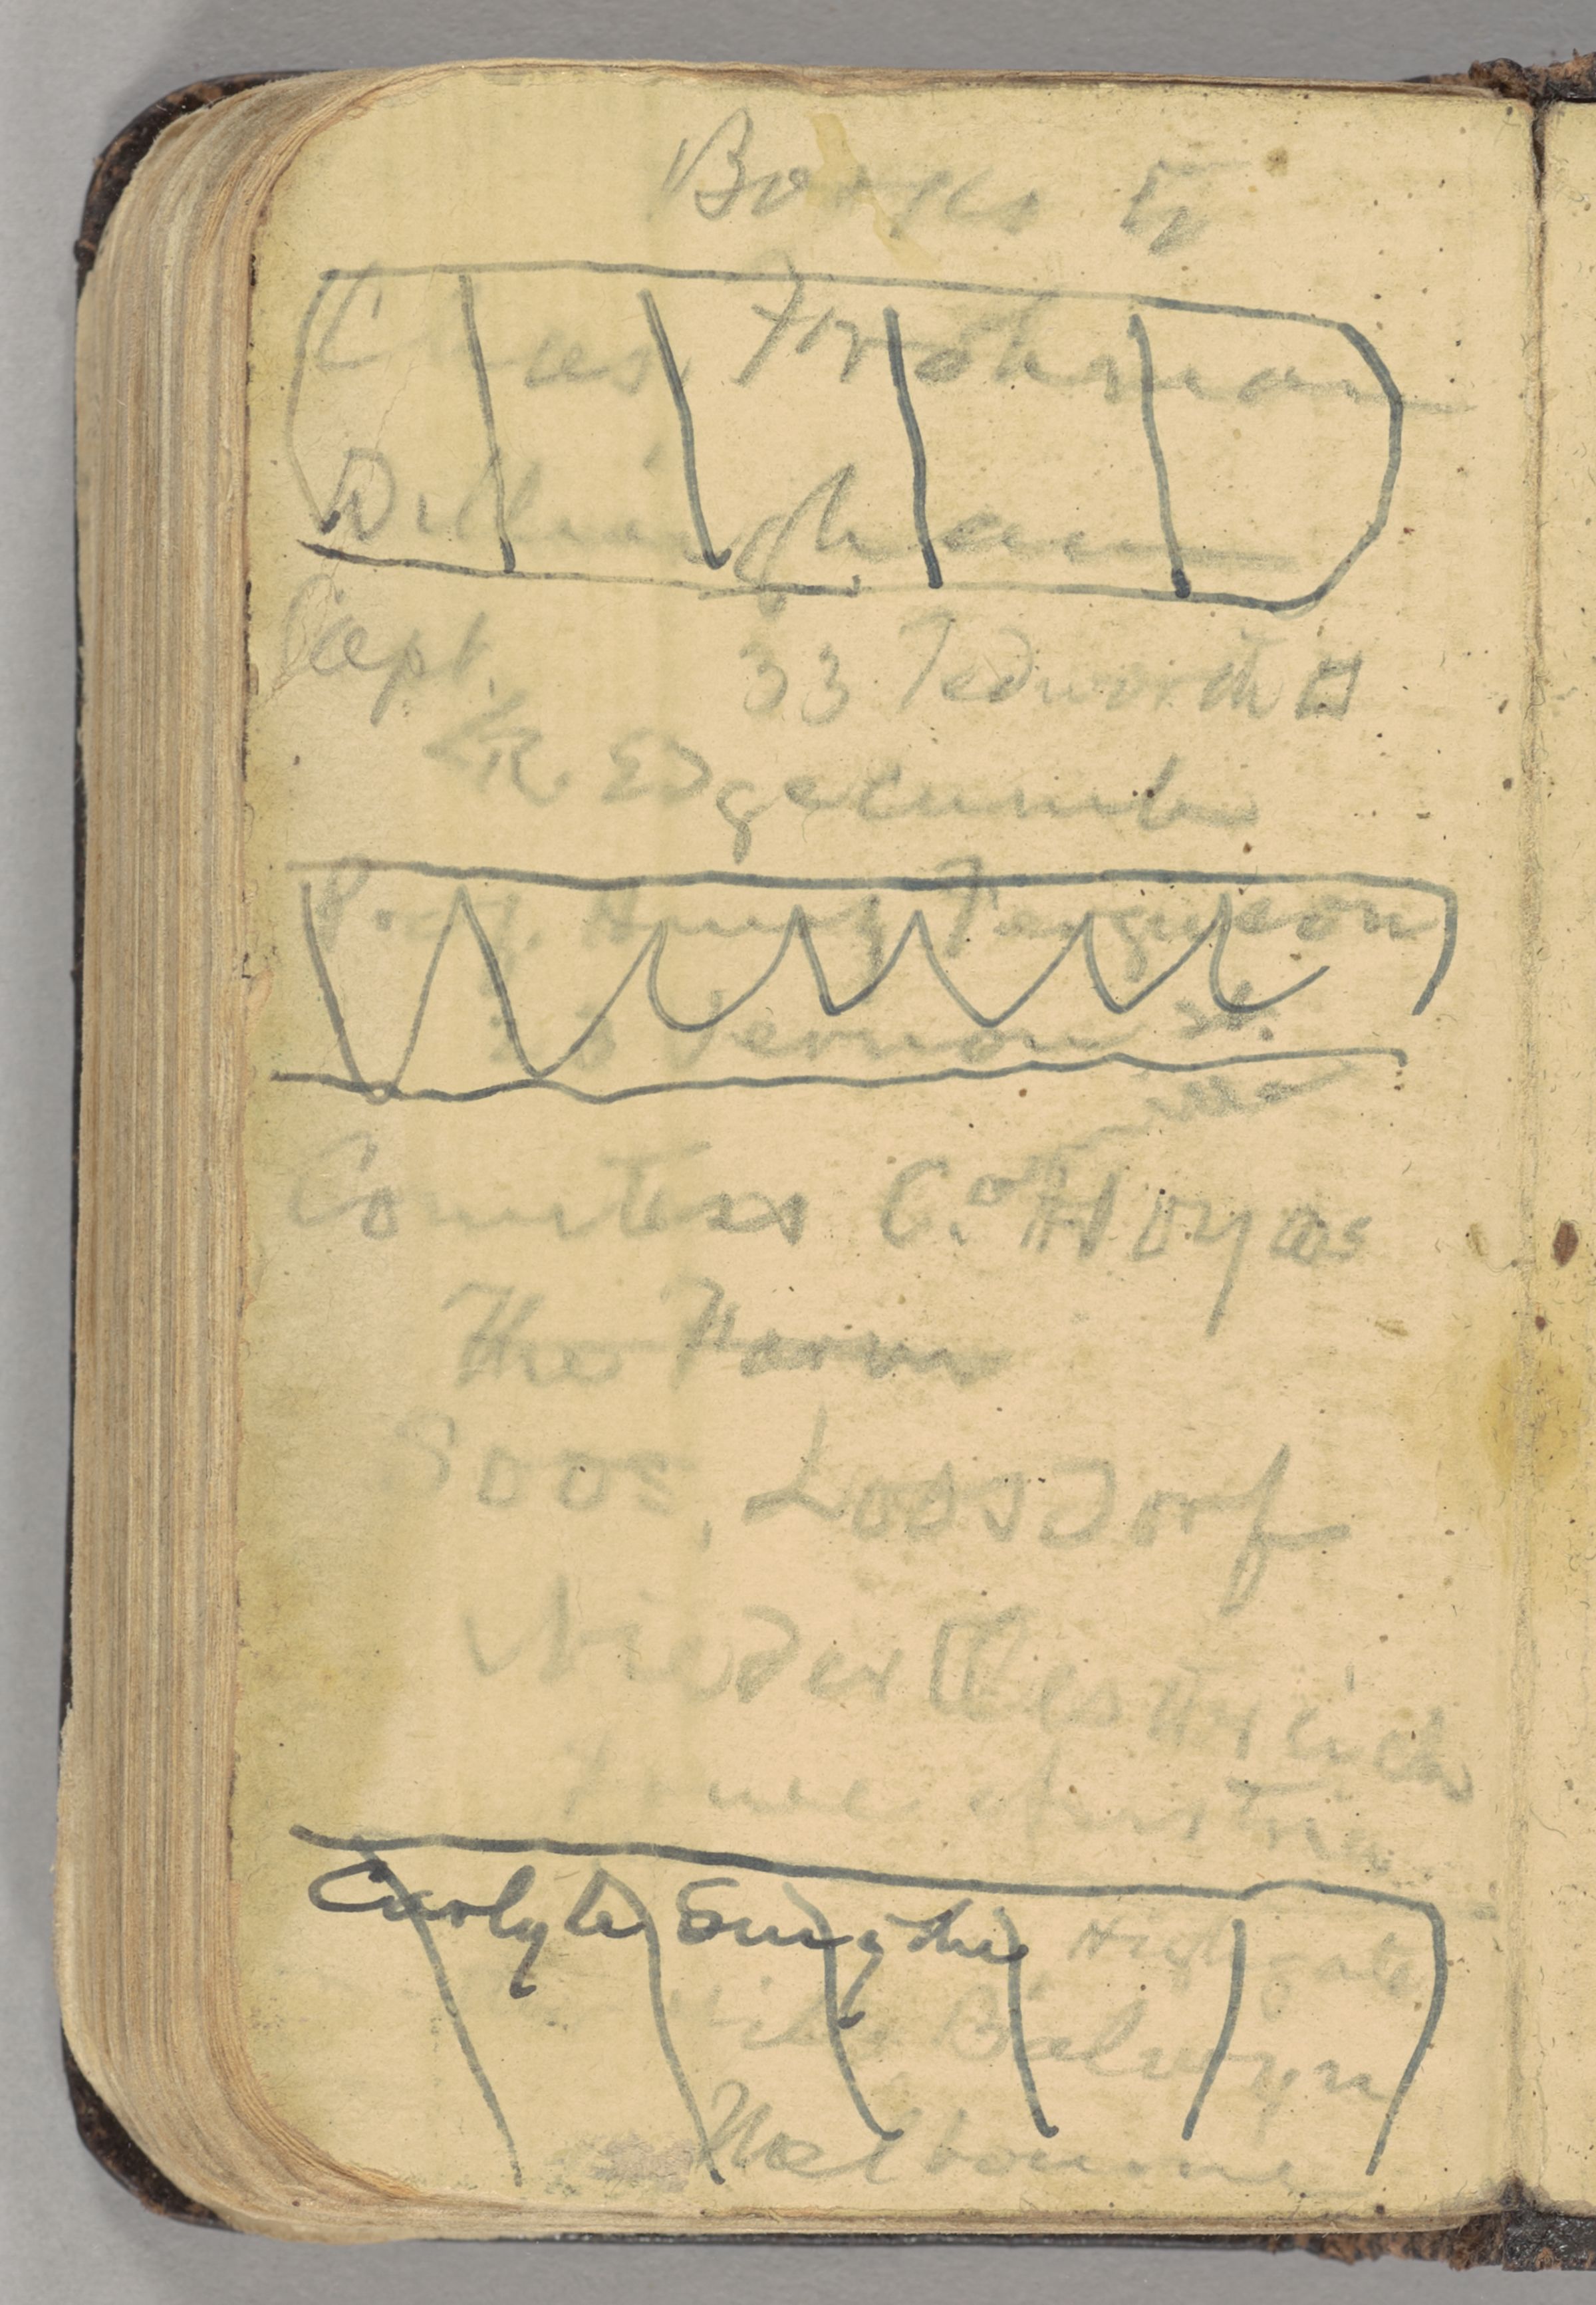 Books to
Chas. Frohman
Dillingham
Capt. 33 Tedworth □
K. Edgecumbe
Prof. Henry Ferguson
23 Vernon St.
Countess C. Hoyos
The Farm
Soos, Loosdorf
Nieder Oesttreich
Austria
Carlyle Smythe, Highgate
Balwyn
Melbourne